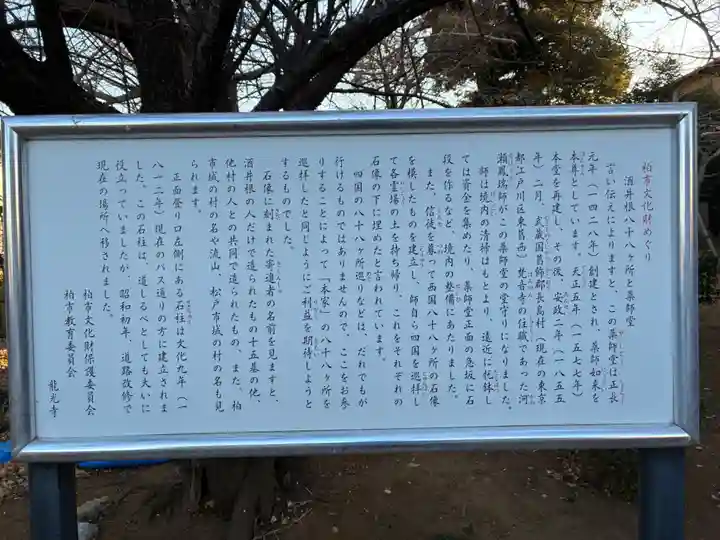 柏市文化財めぐり
酒井根八十八ヶ所と薬師堂
言い伝えによりますと、この薬師堂は正長
元年（一四二八年）創建とされ、薬師如来を
本尊としています。天正五年（一五七七年）
本堂を再建し、その後、安政二年（一八五五
年）二月、武蔵国葛飾郡長島村（現在の東京
都江戸川区東葛西）梵音寺の住職であった河
瀬鳳瑞師がこの薬師堂の堂守りになりました。
師は境内の清掃はもとより、遠近に托鉢し
ては資金を集めたり、薬師堂正面の急坂に石
段を作るなど、境内の整備にあたりました。
また、信徒を募って四国八十八ヶ所の石像
を模したものを建立し、師自ら四国を巡拝し
て各霊場の土を持ち帰り、これをそれぞれの
石像の下に埋めたと言われています。
四国の八十八ヶ所巡りなどは、だれでもが
行けるものではありませんので、ここをお参
りすることによって「本家」の八十八ヶ所を
巡拝したと同じようにご利益を期待しようと
するものでした。
石像に刻まれた寄進者の名前を見ますと、
酒井根の人だけで造られたもの十五基の他、
他村の人との共同で造られたもの、また、柏
市域の村の名や流山、松戸市域の村の名も見
られます。
正面登り口左側にある石柱は文化九年（一
八一二年）現在のバス通りの方に建立されま
した。この石柱は、道しるべとしても大いに
役立っていましたが、昭和初年、道路改修で
現在の場所へ移されました。
柏市文化財保護委員会
柏市教育委員会
龍光寺